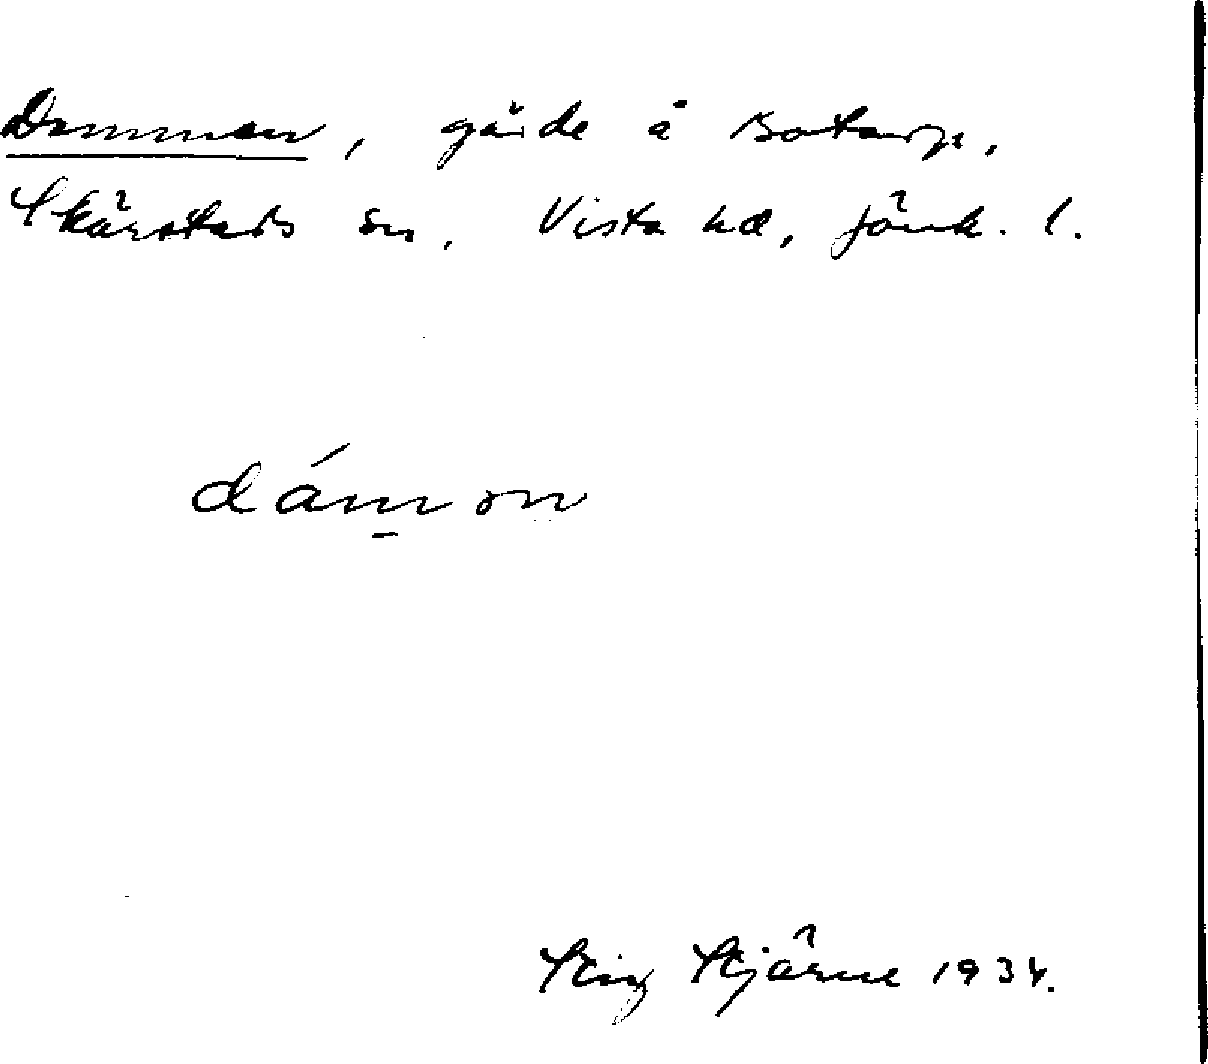 Dammen, gärde å Botarp,
Skärstads sn, Vista hd, Jönk. l.
dám̱ ən
Stig Stjärne 1934.